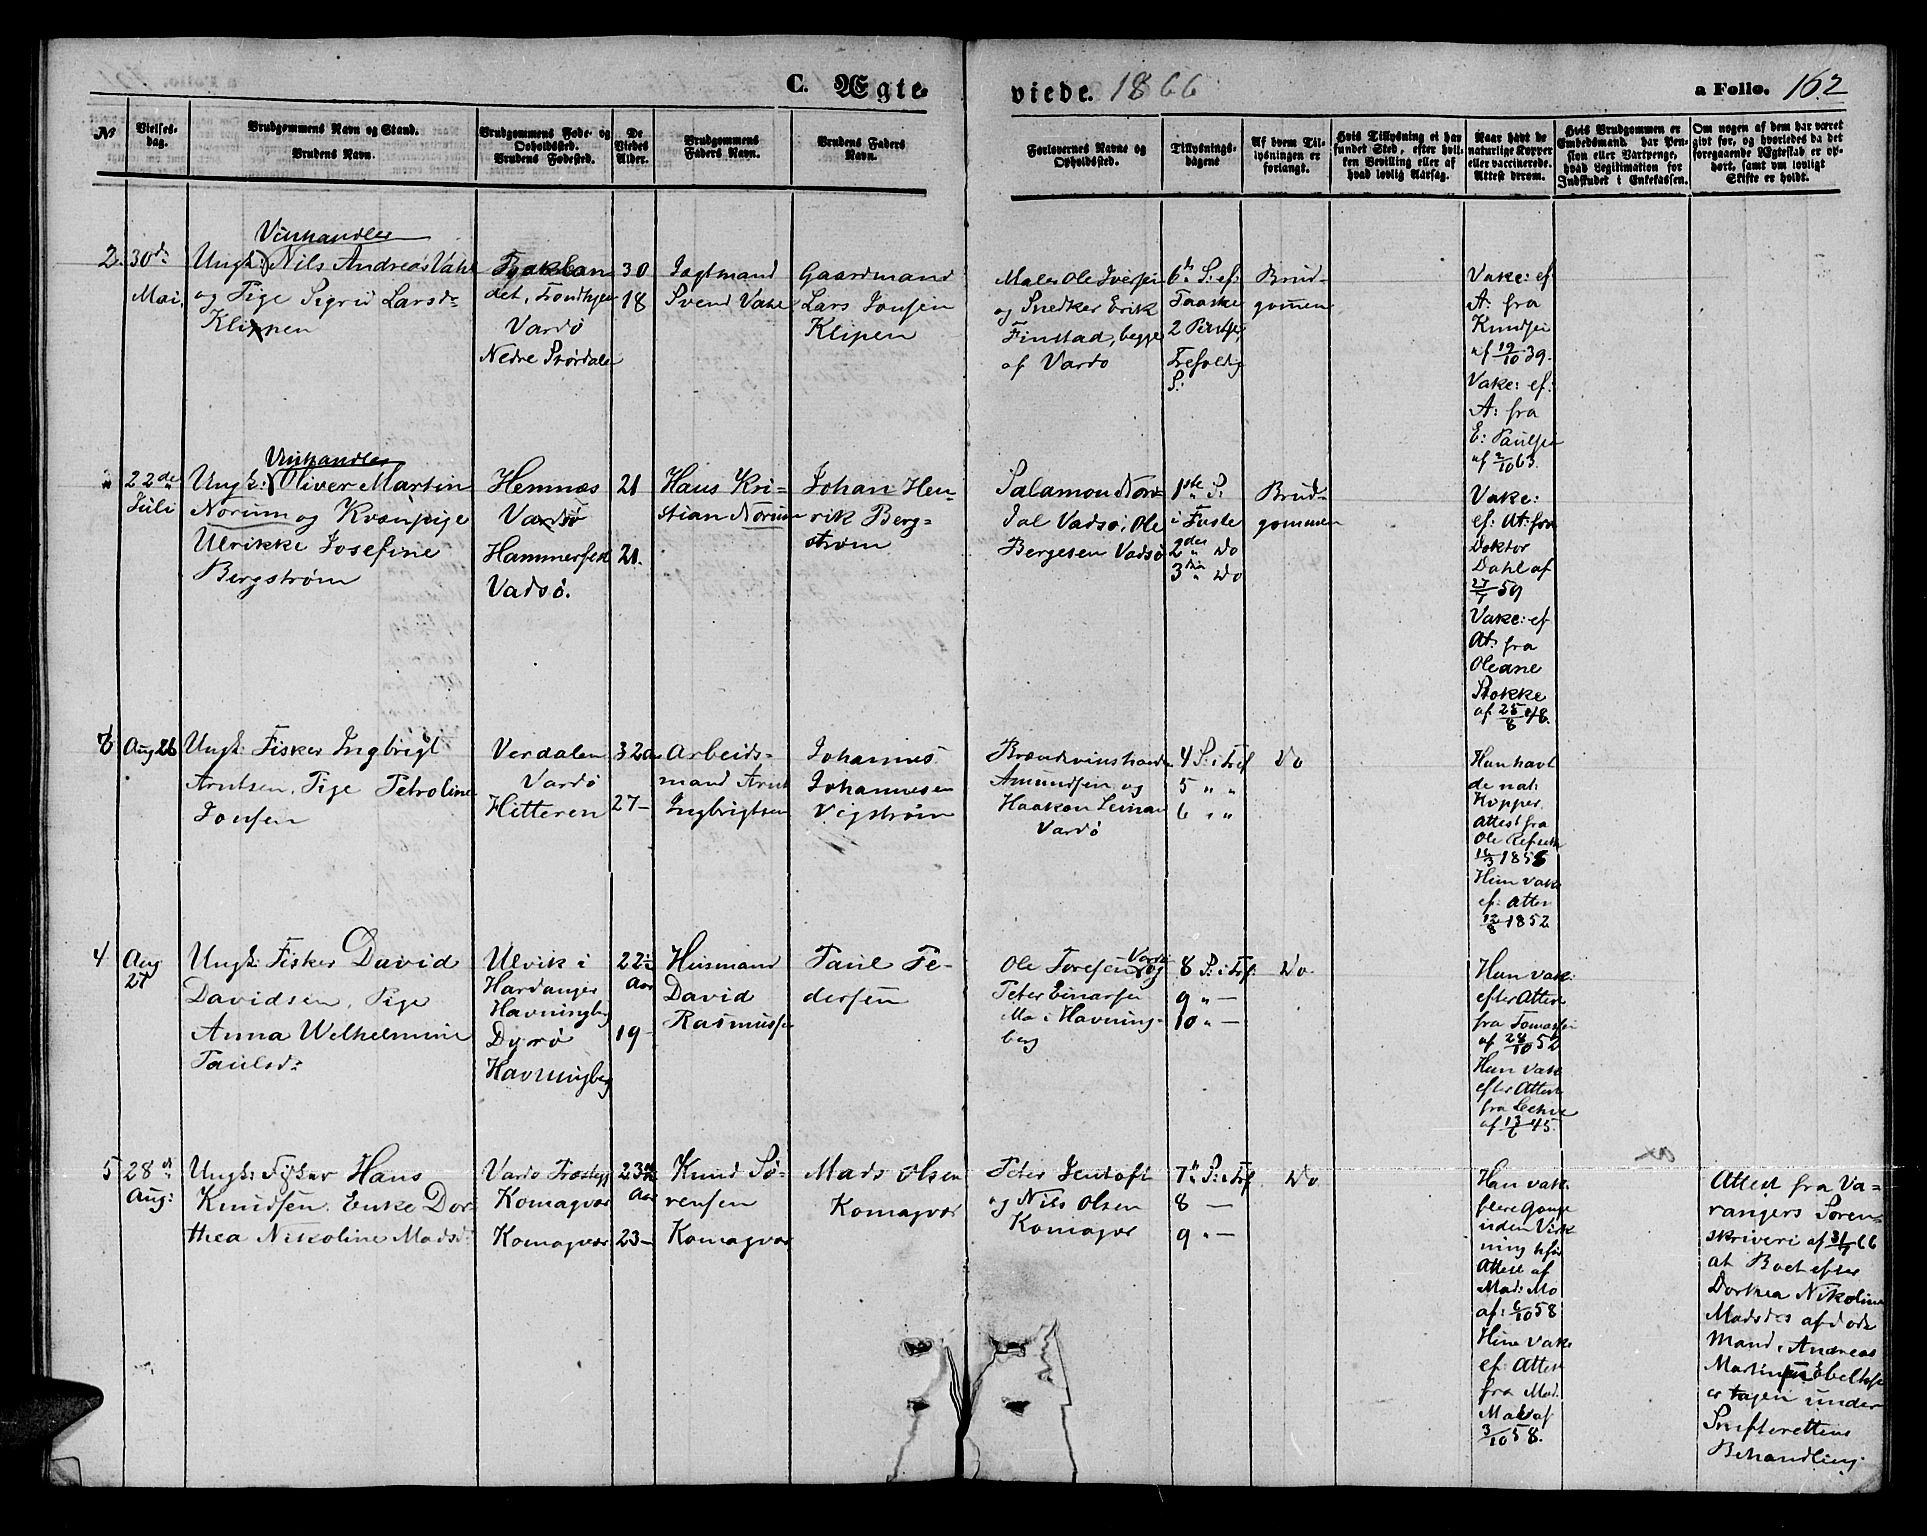 C. Ægteviede. 1866
a Follo. 162
№
Vielses-
dag.
Brudgommens Navn og Stand.
Brudens Navn.
Brudgommens Føde- og
Opholdssted.
Brudens Fødested.
De
Viedes
Alder.
Brudgommens
Faders Navn.
Brudens Faders
Navn.
Forlovernes Navne og
Opholdssted.
Tillysnings-
dagene
Af hvem Til-
lysningen er
forlangt.
Hvis Tillysning ei har
fundet Sted, efter hvil-
ken Bevilling eller af
hvad lovlig Aarsag.
Naar havt de
naturlige Kopper
eller vaccinerede.
Attest derom.
Hvis Brudgommen er
Embedsmand, har Pen-
sion eller Vartpenge,
hvad Legitimation for
Indskudet i Enkekassen.
Om nogen af dem har været
gift før, og hvorledes da det
foregaaende Ægteskab er op-
hørt, samt om lovligt
Skifte er holdt.
2.
30d:
Mai,
Vinhandler
Ungk: Nils Andreas Vake
og Pige Sigrid Larsd:
Klippen
det, Trondhjem
Vardø
Nedre Størdalen
30
18
Jagtmand
Svend Vake
Gaardmand
Lars Jonsen
Klipen
Maler Ole Iversen
og Snedker Erik
Finstad, begge
af Vardø
6te S: ef:
Paaske
2 Pintse,
Trefoldig
S:
Brud-
gommen
Vake: ef
A: fra
Knudsen
af 19/10 39.
Vake: ef:
A: fra
E: Paulsen
af 2/10 63.
22de
Juli
Vinhandler
Ungk: Oliver Martin
Norum og Kvænpige
Ulrikke Josefine
Bergstrøm
Hemnæs
Vardsø
Hammerfest
Vadsø.
21
21.
Hans Kri-
stian Norum
Johan Hen-
rik Berg-
strøm
Salamon Nor-
dal Vadsø, Ole
Bergesen Vadsø
1ste S:
i Faste
2den Do
3die Do
Brud-
gommen
Vake:
ef: At: fra
Doktor
Dahl af
27/7 59
Vake: ef
At: fra
Oleane
Stokke
af 25/8 48.
3
Aug 26
Ungk: Fisker Ingbrigt
Arntsen, Pige Petroline
Jonsen
Verdalen
Vardø
Hitteren
32 a
27 —
Arbeids-
mand Arnt
Ingbrigtsen
Johannes
Johannesen
Vigstrøm
Brændevinshand:
Amundsen og
Haakon Leinan
Vardø
4 S: i Tref
5 " "
6 " "
Do
Han havt
de nat:
Kopper.
Attest fra
Ole Refseth
16/3 1855
Hun vake
ef: Attes
12/8 1852
4
Aug
27
Ungk: Fisker David
Davidsen, Pige
Anna Wilhelmine
Paulsd:
Ulvik i
Hardanger
Havningberg
Dyrø
Havningberg
22½
Aar
19 —
Husmand
David
Rasmussen
Paul Pe-
dersen
Ole Toresen Vardø og
Peter Einarsen
Mo i Havning-
berg
8 S: i Tref:
9 " —
10 " —
Do
Han vak:
efter Attest
fra Tomassen
af 28/10 52
Hun vak:
efter Attest
fra
af 13/6 45.
5
28d
Aug:
Ungk: Fisker Hans
Knudsen. Enke Dor-
thea Nikoline Madsd:
Vardø Præstegj
Komagvær
Komagvær
23½
Aar
23 —
Knud Sø-
rensen
Komagvær
Mads Olsen
Komagvær
Peter Jentoft
og Nils Olsen
Komagvær
7de S: i Tref
8 —
9 " —
Do
Han vak:
flere Gange
uden Virk-
ning ifør
Attest af
Mad: Mo
af: 6/10 58
Hun vake
ef: Attest
fra Mad:
Mo af
3/10 58.
Attest fra Va-
rangers Soren-
skriveri af 31/7 66
at Boet efter
Dorthea Nikoline
Madsd:s afdøde
Mand, Andreas
Martinsen Ebeltoft
er tagen under
Skifterettens
Behandling